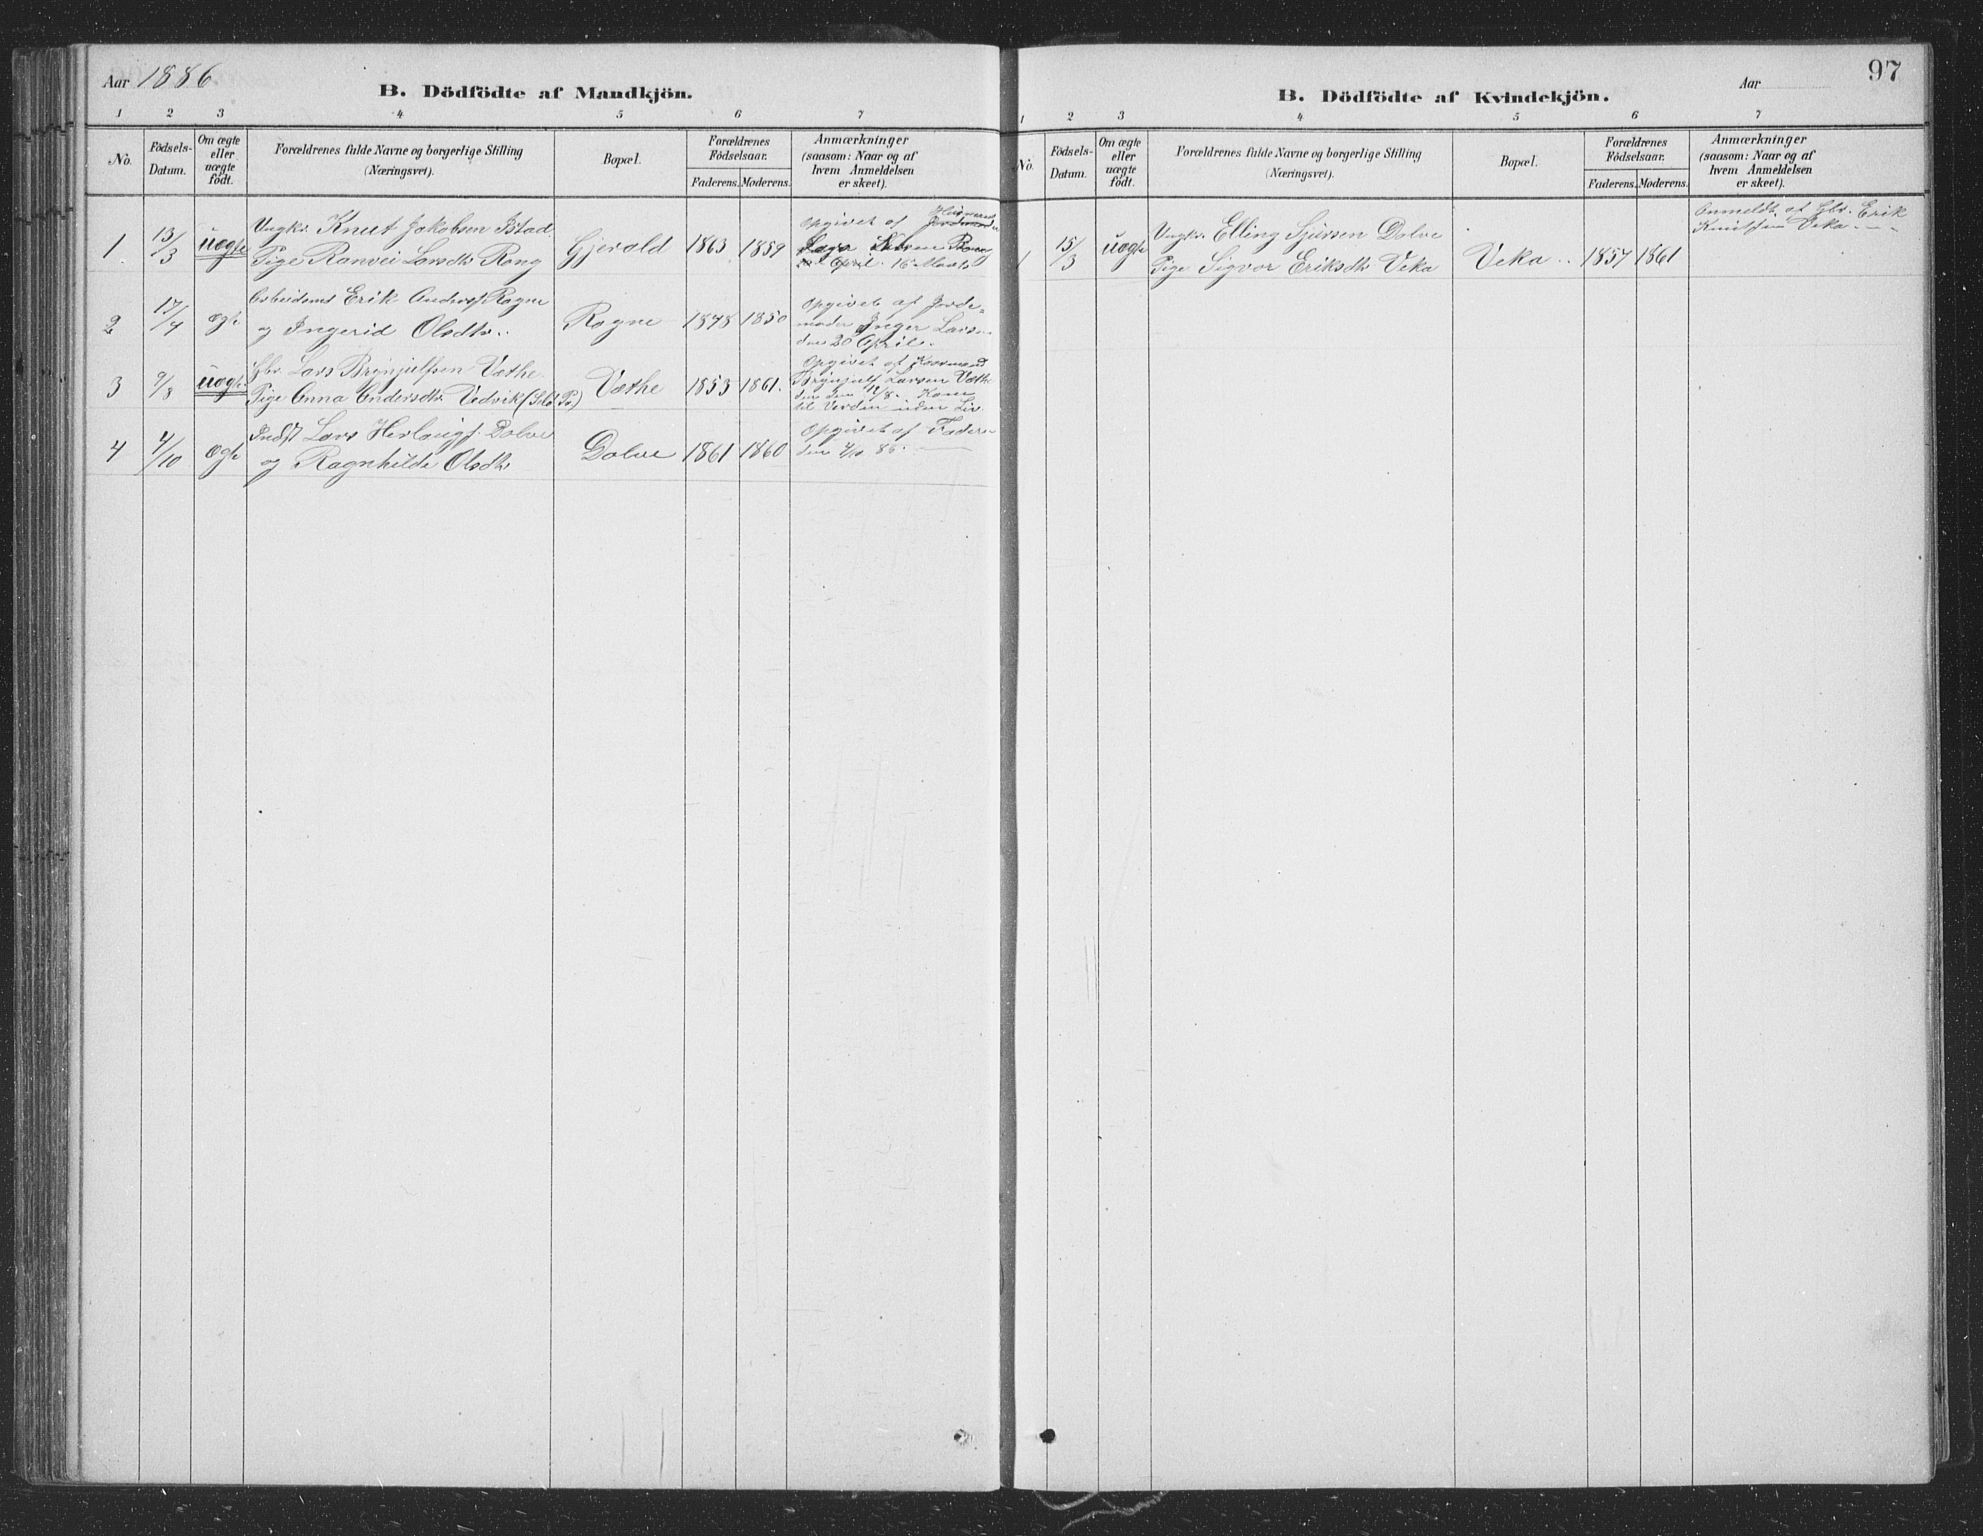 Aar 1886
B. Dödfödte af Mandkjön.
1 2 3 4 5 6 7
No.
Födsels-
Datum.
Om ægte
eller
uægte
födt.
Forældrenes fulde Navne og borgerlige Stilling
(Næringsvei).
Bopæl.
Forældrenes
Födselsaar.
Faderens. Moderens.
Anmærkninger
(saasom: Naar og af
hvem Anmeldelsen
er skeet).
1 13/3 uægte Ungk. Knut Jakobsen Istad
Pige Ranvei Larsdtr Rong
Gjerald 1863 1859
Opgivet af
April. 16 Marts
2 17/4 ægte Arbeidsmd Erik Anders. Rogne
og Ingerid Olsdtr.
Rogne 1848 1850
Opgivet af Jorde-
moder Inger Lars
den 20 April.
3 9/8 uægte Gbr. Lars Brynjulfsen Væthe
Pige Anna Andersdtr Vedvik
Væthe 1853 1861.
Opgivet af
Brynjulf Larsen Væthe
den 12/8. Kom
til Verden uden Liv
4 4/10 ægte Indst Lars Herlaugs. Dolve
og Ragnhilde Olsdtr
Dolve 1861 1860
Opgivet af Fader
den 4/10 86.
97
Aar
B. Dödfödte af Kvindekjön.
1 2 3 4 5 6 7
No.
Födsels-
Datum.
Om ægte
eller
uægte
födt.
Forældrenes fulde Navne og borgerlige Stilling
(Næringsvei).
Bopæl.
Forældrenes
Födselsaar.
Faderens. Moderens.
Anmærkninger
(saasom: Naar og af
hvem Anmeldelsen
er skeet).
1 15/3 uægte Ungk. Elling Sjursen Dolve
Pige Sigvor Eriksdtr Veka
Veka 1857 1861
Anmeldt af Gbr. Erik
Knutsen Veka